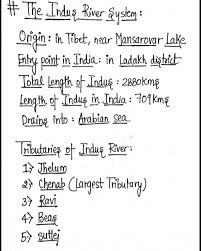 # The Indus River System:
Origin: in Tibet, near Mansarovar Lake
Entry point in India: in Ladakh district
Total Length of Indus: 2880kms
Length of Indus in India: 709kms
Drains into: Arabian Sea
Tributaries of Indus River:
1> Jhelum
2> Chenab (Largest Tributary)
3> Ravi
4> Beas
5> sutlej